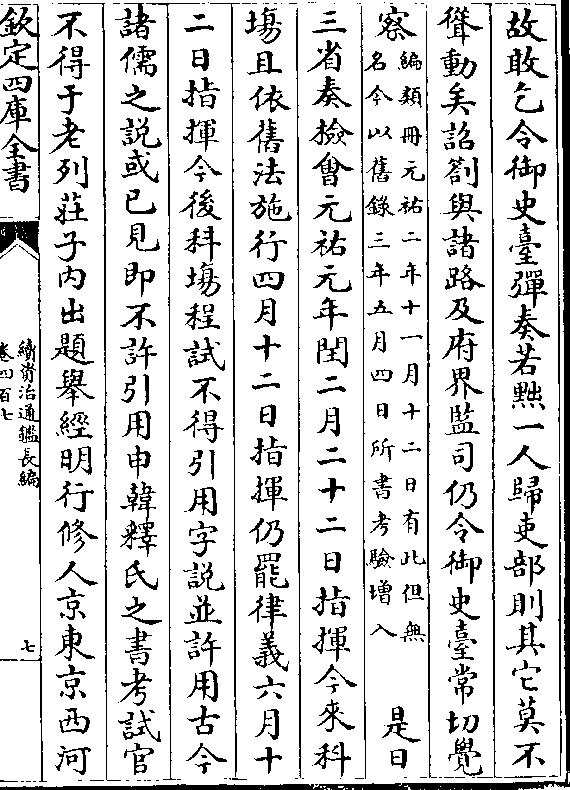 故敢乞令御史臺彈奏若黜一人歸吏部則其它莫不
聳動矣詔劄與諸路及府界監司仍令御史臺常切覺
察
編類冊元祐二年十一月十二日有此但無
名今以舊錄三年五月四日所書考驗增入
是日
三省奏撿會元祐元年閏二月二十二日指揮今來科
塲且依舊法施行四月十二日指揮仍罷律義六月十
二日指揮今後科塲程試不得引用字説並許用古今
諸儒之説或已見即不許引用申韓釋氏之書考試官
不得于老列莊子內出題舉經明行修人京東京西河
欽定四庫全書
續資治通鑑長編
卷四百七
七